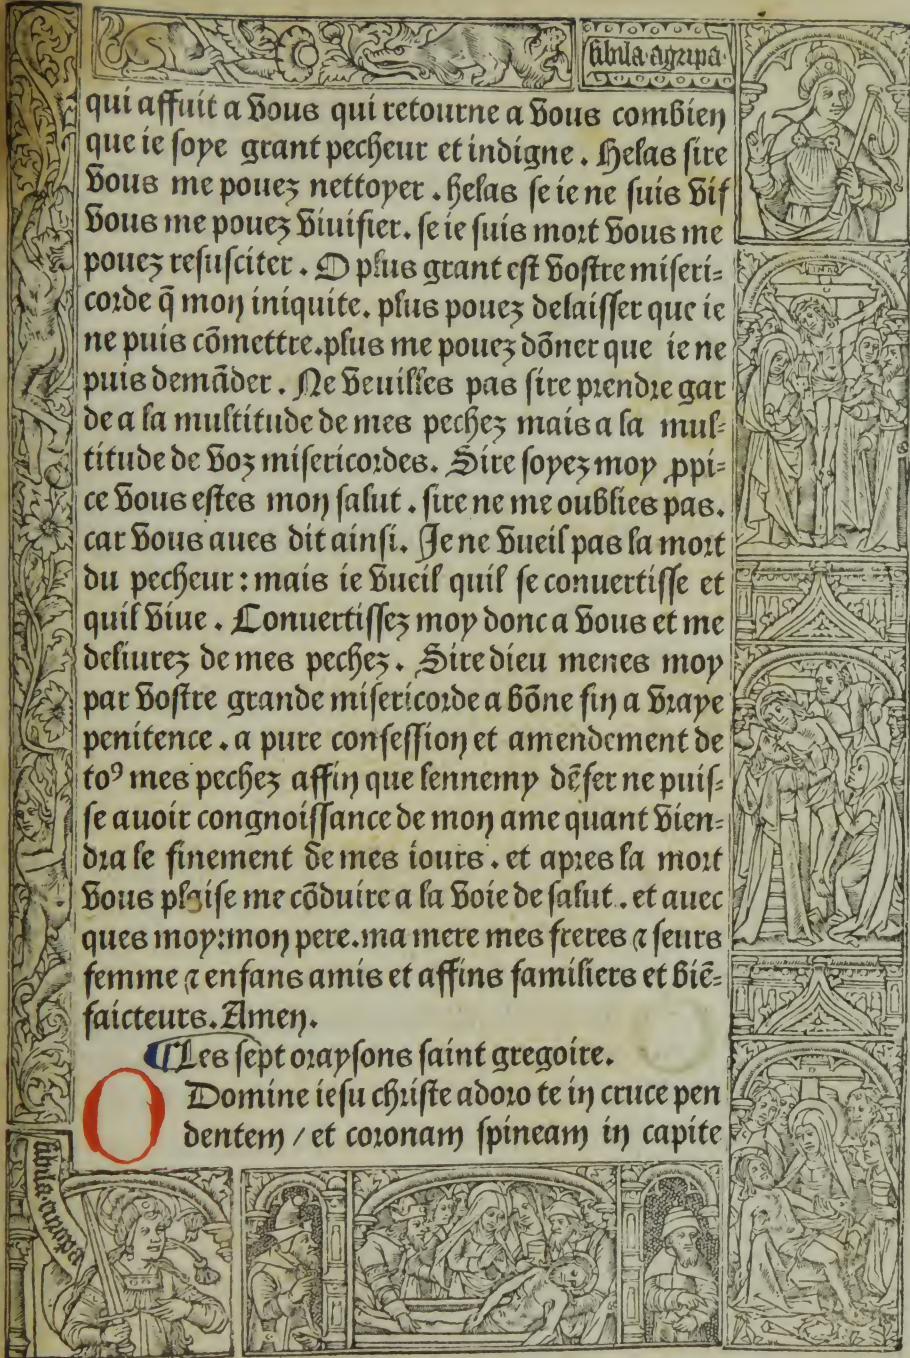 sibila agripa
qui affuit a vous qui retourne a vous combien
que ie soye grant pecheur et indigne. Helas sire
vous me pouez nettoyer. helas se ie ne suis vif
vous me pouez viuifier. se ie suis mort vous me
pouez resusciter. O plus grant est vostre miseri=
corde q̃ mon iniquite. plus pouez delaisser que ie
ne puis cõmettre. plus me pouez dõner que ie ne
puis demãder. Ne veuilles pas sire prendre gar
de a la multitude de mes pechez mais a la mul=
titude de voz misericordes. Sire soyez moy ꝓpi=
ce vous estes mon salut. sire ne me oublies pas.
car vous aues dit ainsi. Je ne vueil pas la mort
du pecheur: mais ie vueil quil se conuertisse et
quil viue. Conuertissez moy donc a vous et me
deliurez de mes pechez. Sire dieu menes moy
par vostre grande misericorde a bõne fin a vraye
penitence. a pure confession et amendement de
toꝰ mes pechez affin que lennemy dẽfer ne puis=
se auoir congnoissance de mon ame quant vien=
dra le finement de mes iours. et apres la mort
vous plaise me cõduire a la voie de salut. et auec
ques moy: mon pere. ma mere mes freres ⁊ seurs
femme ⁊ enfans amis et affins familiers et biẽ=
faicteurs. Amen.
¶ Les sept oraysons saint gregoire.
O Domine iesu christe adoro te in cruce pen
dentem / et coronam spineam in capite
sibila europa